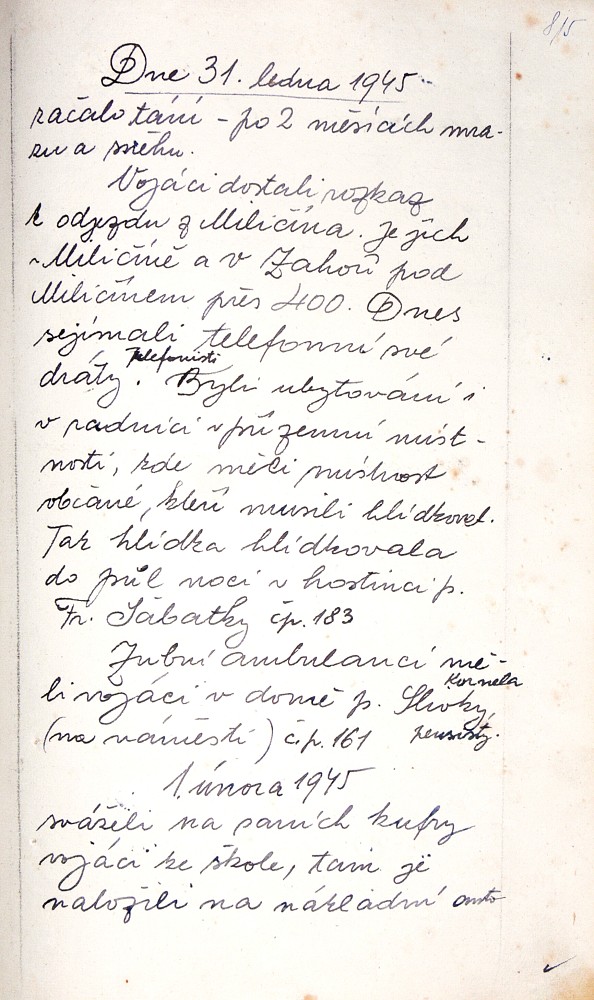 8/5
Dne 31. ledna 1945
začalo táni - po 2 měsících mra-
zu a sněhu.
Vojáci dostali rozkaz
k odjezdu z Miličína. Jejich
v Miličíně a v Záhoří pod
Miličínem přes 400. Dnes
sejímali telefonní své
dráty. Telefonisti
Byli ubytováni i
v radnici v přízemní míst-
nosti, kde měli místnost
občané, kteří musili hlídkovat.
Tak hlídka hlídkovala
do půl noci v hostinci p.
Fr. Sábatky čp. 183
Zubní ambulanci mě-
li vojáci v domě p. Kornela
(na náměstí) č.p. 161 pensisty.
1. února 1945
sváželi na saních kufry
vojáci ke škole, tam je
naložili na nákladní auto